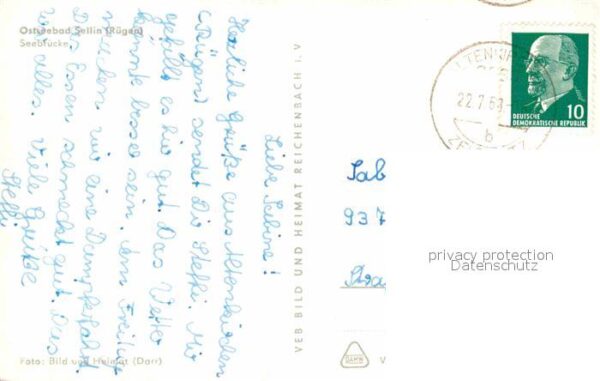 Ostseebad Sellin (Rügen)
Seebrücke
Liebe Sabine!
Herzliche Grüße aus Altenkirchen
(Rügen) sendet Dir Steffi. Mir
gefällt es hier gut. Das Wetter
könnte besser sein. Am Freitag
machten wir eine Dampferfahrt.
Das Essen schmeckt gut. Dies
wär alles. Viele Grüße
Steffi
Foto: Bild und Heimat (Darr)
VEB BILD UND HEIMAT REICHENBACH I. V.
Sab
937
Stra
V
10
DEUTSCHE
DEMOKRATISCHE REPUBLIK
22.7.6
b
privacy protection
Datenschutz